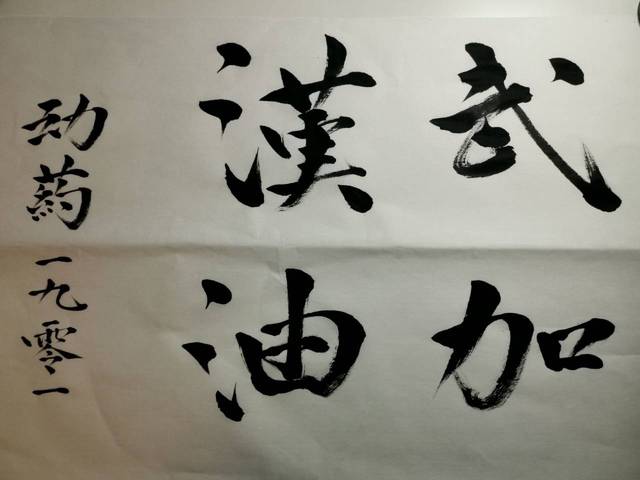 武漢
加油
动葯一九零一